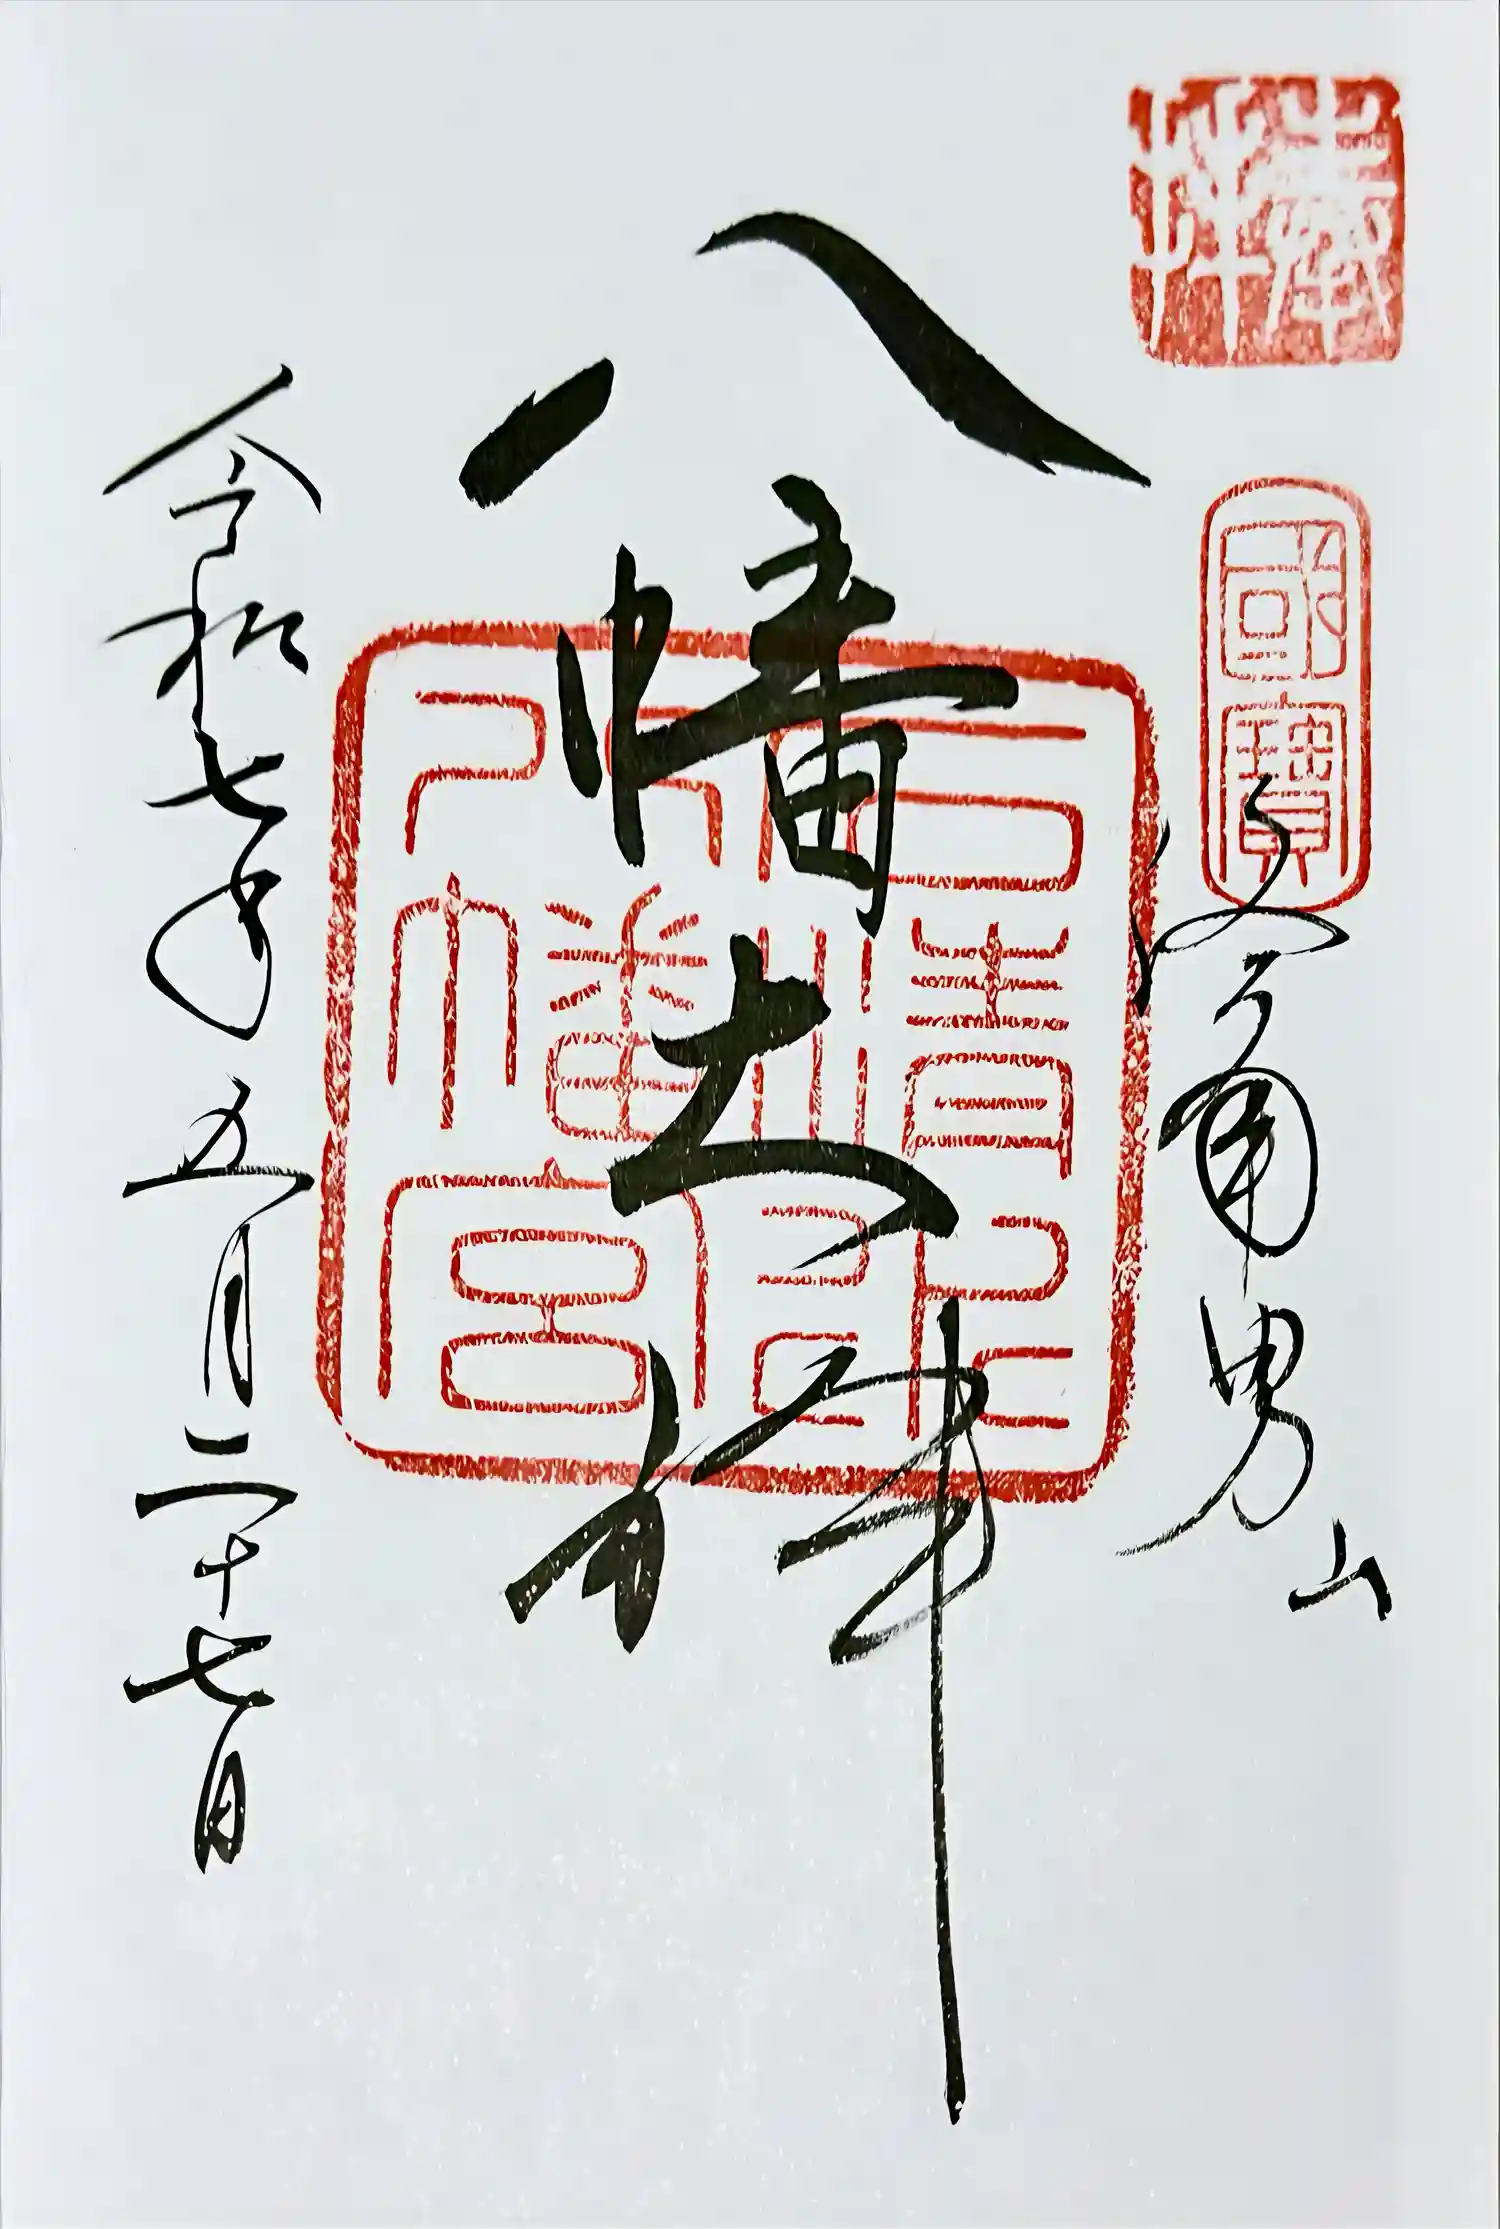 奉拝
國寶
洛南男山
八幡大神
石清水
八幡宮
令和七年五月二十七日